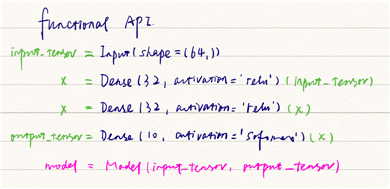 functional API.
input_tensor = Input(shape=(64,))
x = Dense(32, activation='relu')(input_tensor)
x = Dense(32, activation='relu')(x)
output_tensor = Dense(10, activation='Sofomax')(x)
model = Model(input_tensor, output_tensor)